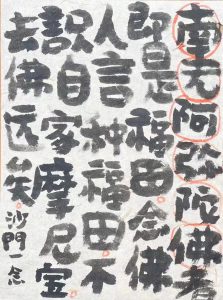 南无阿弥陀佛者
即是福田念佛
人言种福田不
识自家摩尼宝
去佛远矣
沙門一念